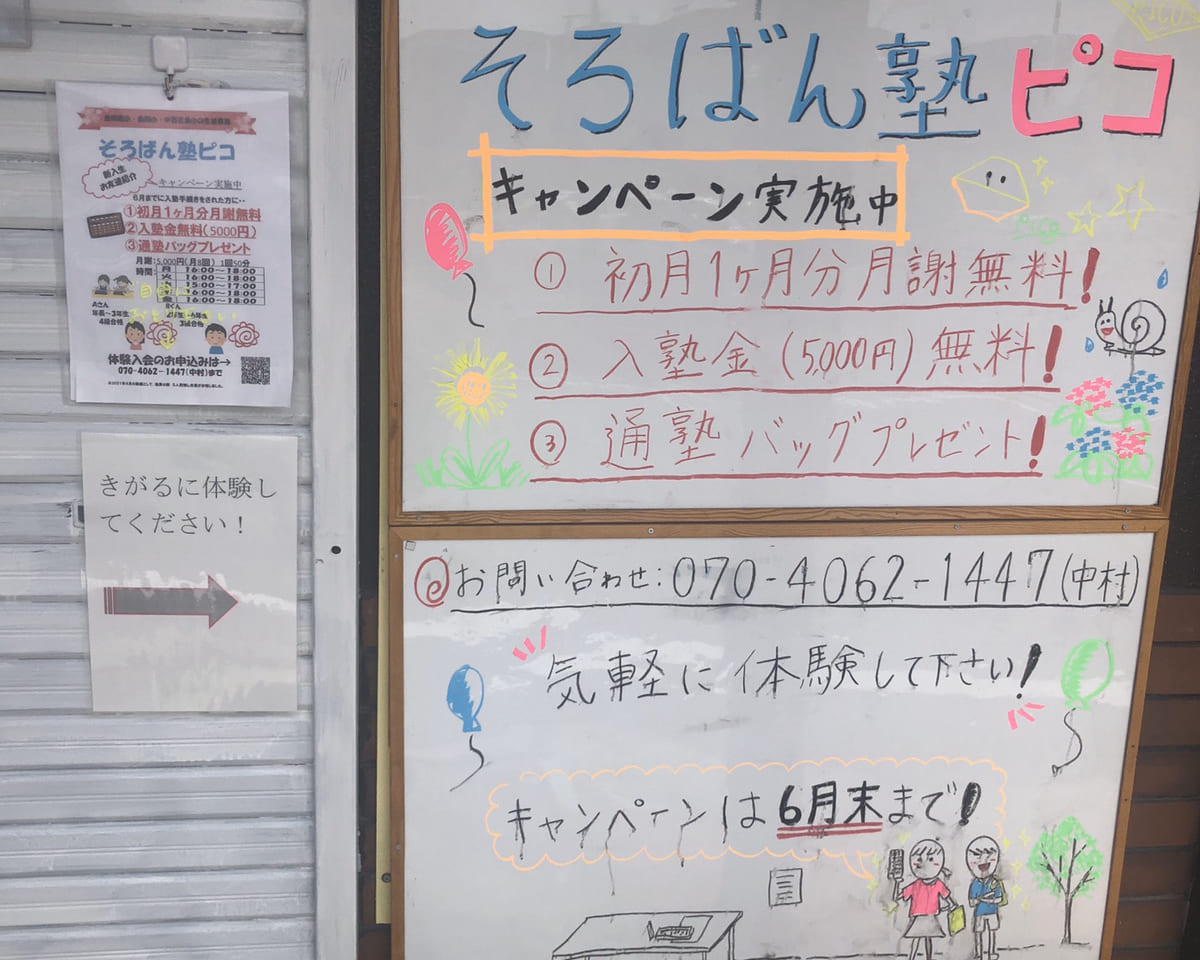 そろばん塾ピコ
キャンペーン実施中
① 初月1ヶ月分月謝無料!
② 入塾金(5,000円)無料!
③ 通塾バッグプレゼント!
@お問い合わせ:070-4062-1447(中村)
気軽に体験して下さい!
キャンペーンは6月末まで!
そろばん塾ピコ
新入生
お友達紹介
キャンペーン実施中
6月までに入塾手続きをされた方に・・
①初月1ヶ月分月謝無料
②入塾金無料(5000円)
③通塾バッグプレゼント
月謝:5,000円(月8回) 1回50分
時間:
月 16:00~18:00
火 16:00~18:00
15:00~17:00
16:00~18:00
金 16:00~18:00
Aさん
年長~3年生
4級合格
3級合格
体験入会のお申込みは→
070-4062-1447(中村)まで
きがるに体験し
てください!